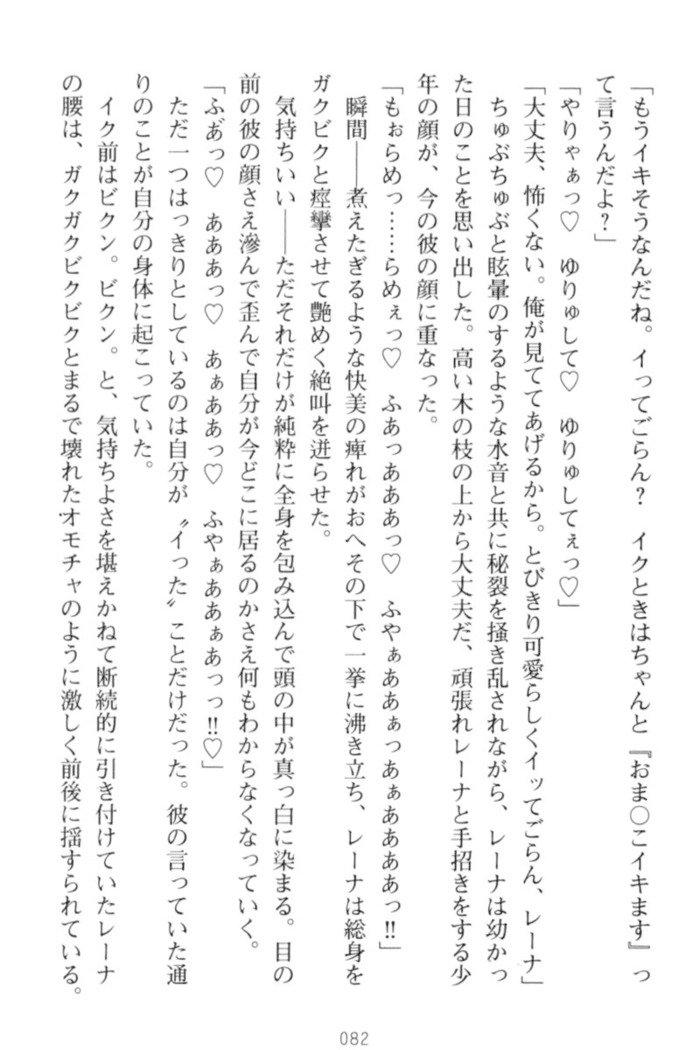 「もうイキそうなんだね。イってごらん？　イクときはちゃんと『おま○こイキます』っ
て言うんだよ？」
「やりゃぁっ♡　ゆりゅして♡　ゆりゅしてぇっ♡」
「大丈夫、怖くない。俺が見ててあげるから。とびきり可愛らしくイッてごらん、レーナ」
ちゅぶちゅぶと眩暈のするような水音と共に秘裂を掻き乱されながら、レーナは幼かっ
た日のことを思い出した。高い木の枝の上から大丈夫だ、頑張れレーナと手招きをする少
年の顔が、今の彼の顔に重なった。
「もぉらめっ……らめぇっ♡　ふあっあああっ♡　ふやぁああぁっあぁああああっ‼」
瞬間――煮えたぎるような快美の痺れがおへその下で一挙に沸き立ち、レーナは総身を
ガクビクと痙攣させて艶めく絶叫を迸らせた。
気持ちいい――ただそれだけが純粋に全身を包み込んで頭の中が真っ白に染まる。目の
前の彼の顔さえ滲んで歪んで自分が今どこに居るのかさえ何もわからなくなっていく。
「ふあ゛っ♡　あああっ♡　あぁああっ♡　ふやぁああぁあっっ‼♡」
ただ一つはっきりとしているのは自分が〝イった〟ことだけだった。彼の言っていた通
りのことが自分の身体に起こっていた。
イク前はビクン。ビクン。と、気持ちよさを堪えかねて断続的に引き付けていたレーナ
の腰は、ガクガクビクビクとまるで壊れたオモチャのように激しく前後に揺すられている。
082